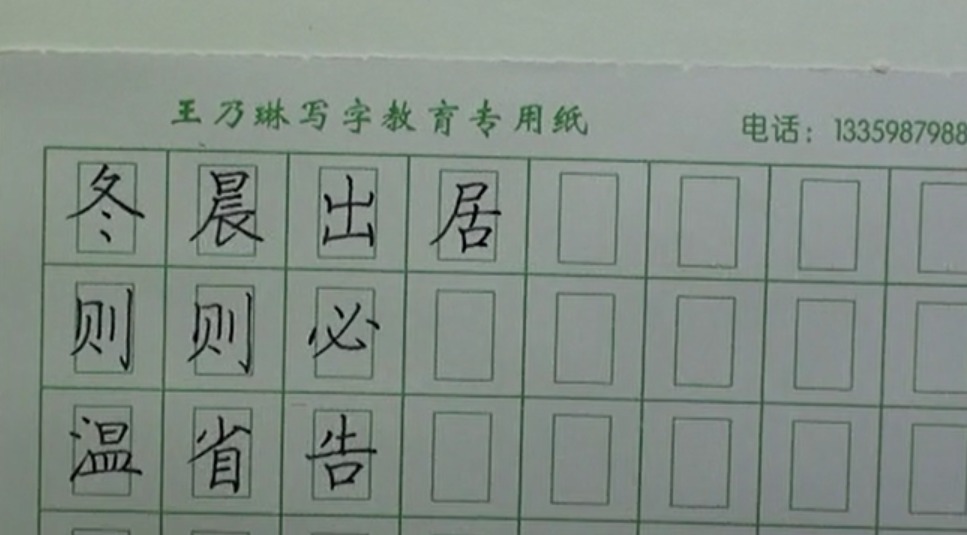 王乃琳写字教育专用纸
电话：1335987988
冬晨出居
则则必
温省告